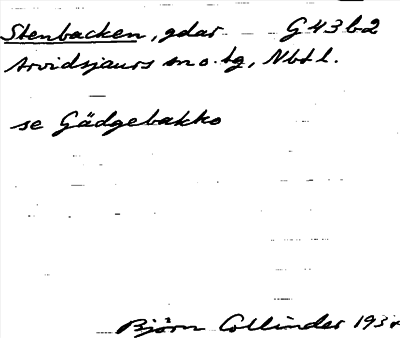 Stenbacken, gdar G 43 b2
Arvidsjaurs sn o. tg, Nbtl.
se Gädgebakko
Björn Collinder